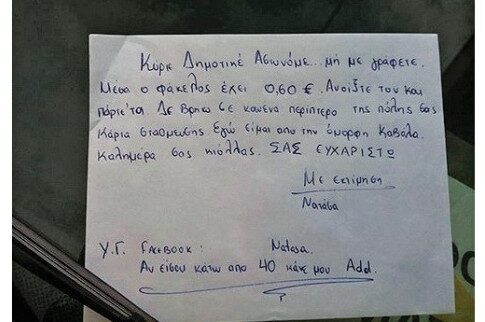 Κύριε Δημοτικέ Αστυνόμε... μή με γράφετε.
Μέσα ο φάκελος έχει 0,60 €. Ανοίξτε τον και
πάρτε'τα. Δε βρήκα σε κανένα περίπτερο της πόλης σας
κάρτα στάθμευσης Εγώ είμαι από την όμορφη Καβάλα.
Καλημέρα σας κιόλας. ΣΑΣ ΕΥΧΑΡΙΣΤΩ
Με εκτίμηση
Νατάσα
Υ.Γ. FACEBOOK: Natasa.
Αν είσαι κάτω από 40 κάνε μου Add.